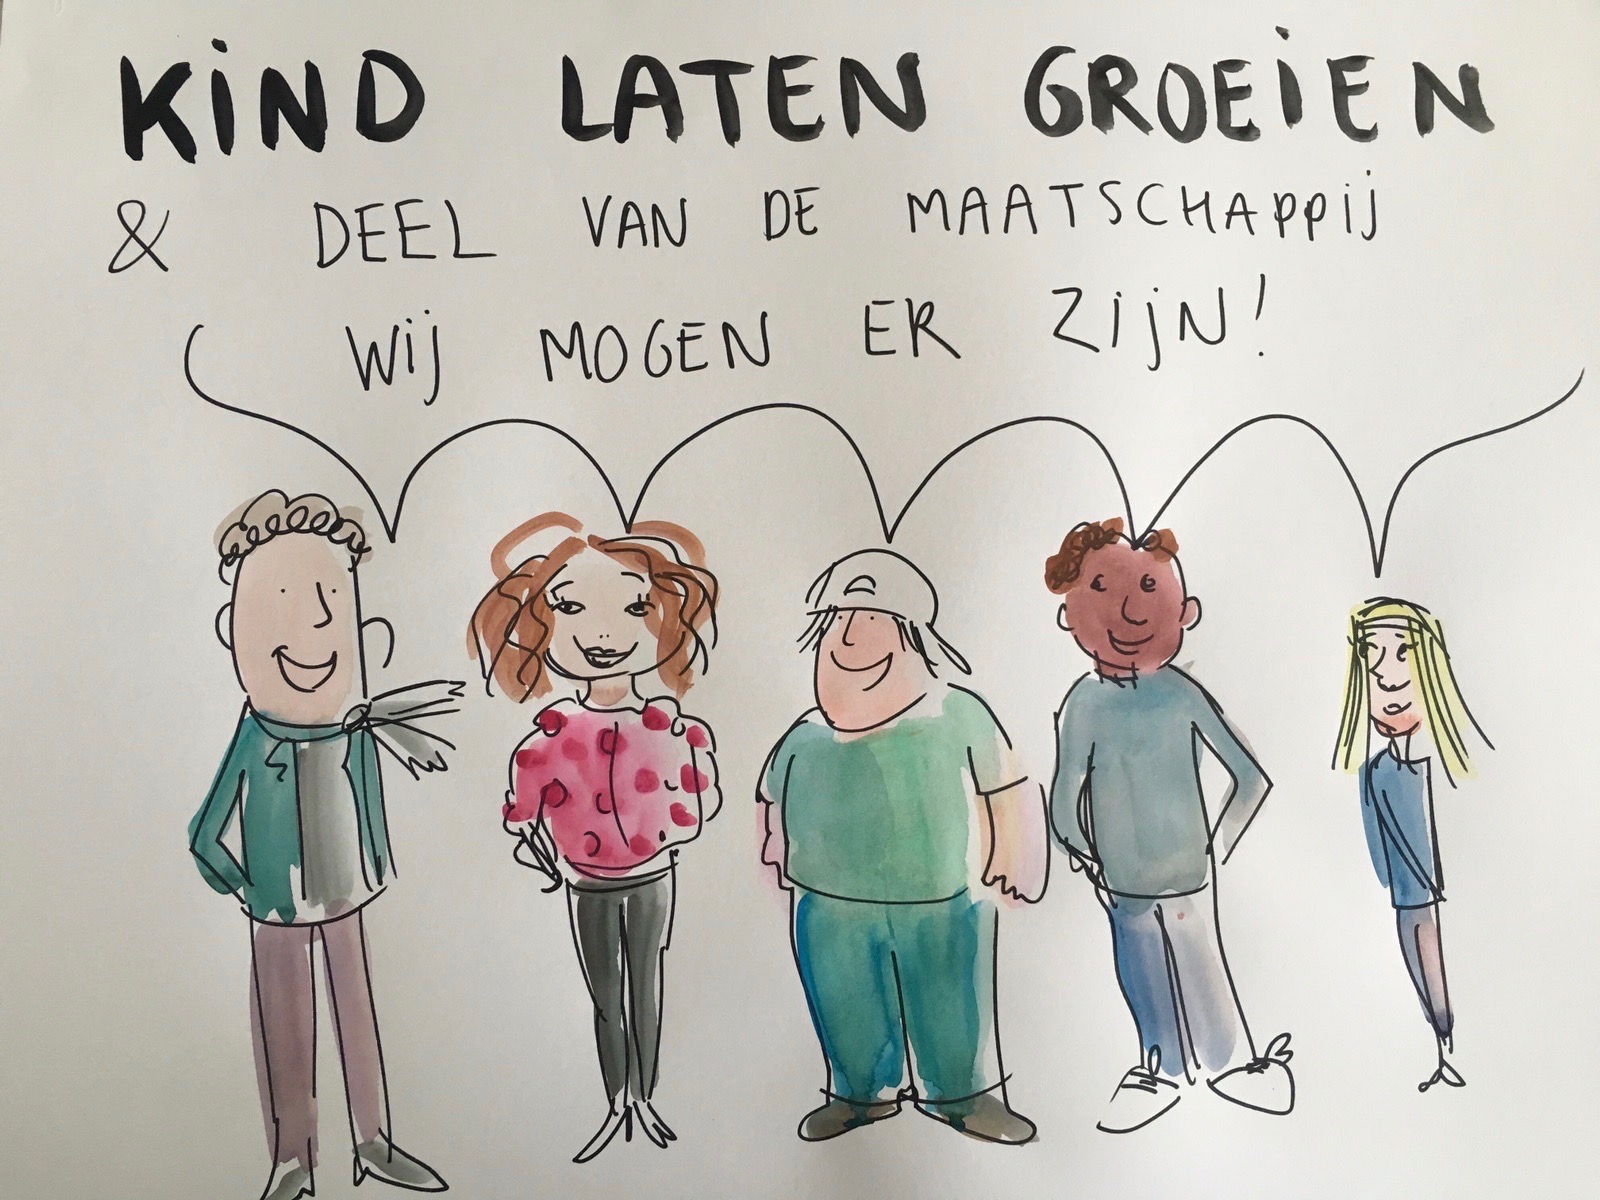 KiND LATEN GROEiEN
& DEEL VAN DE MAATSCHAPPij
Wij MOGEN ER ZijN!